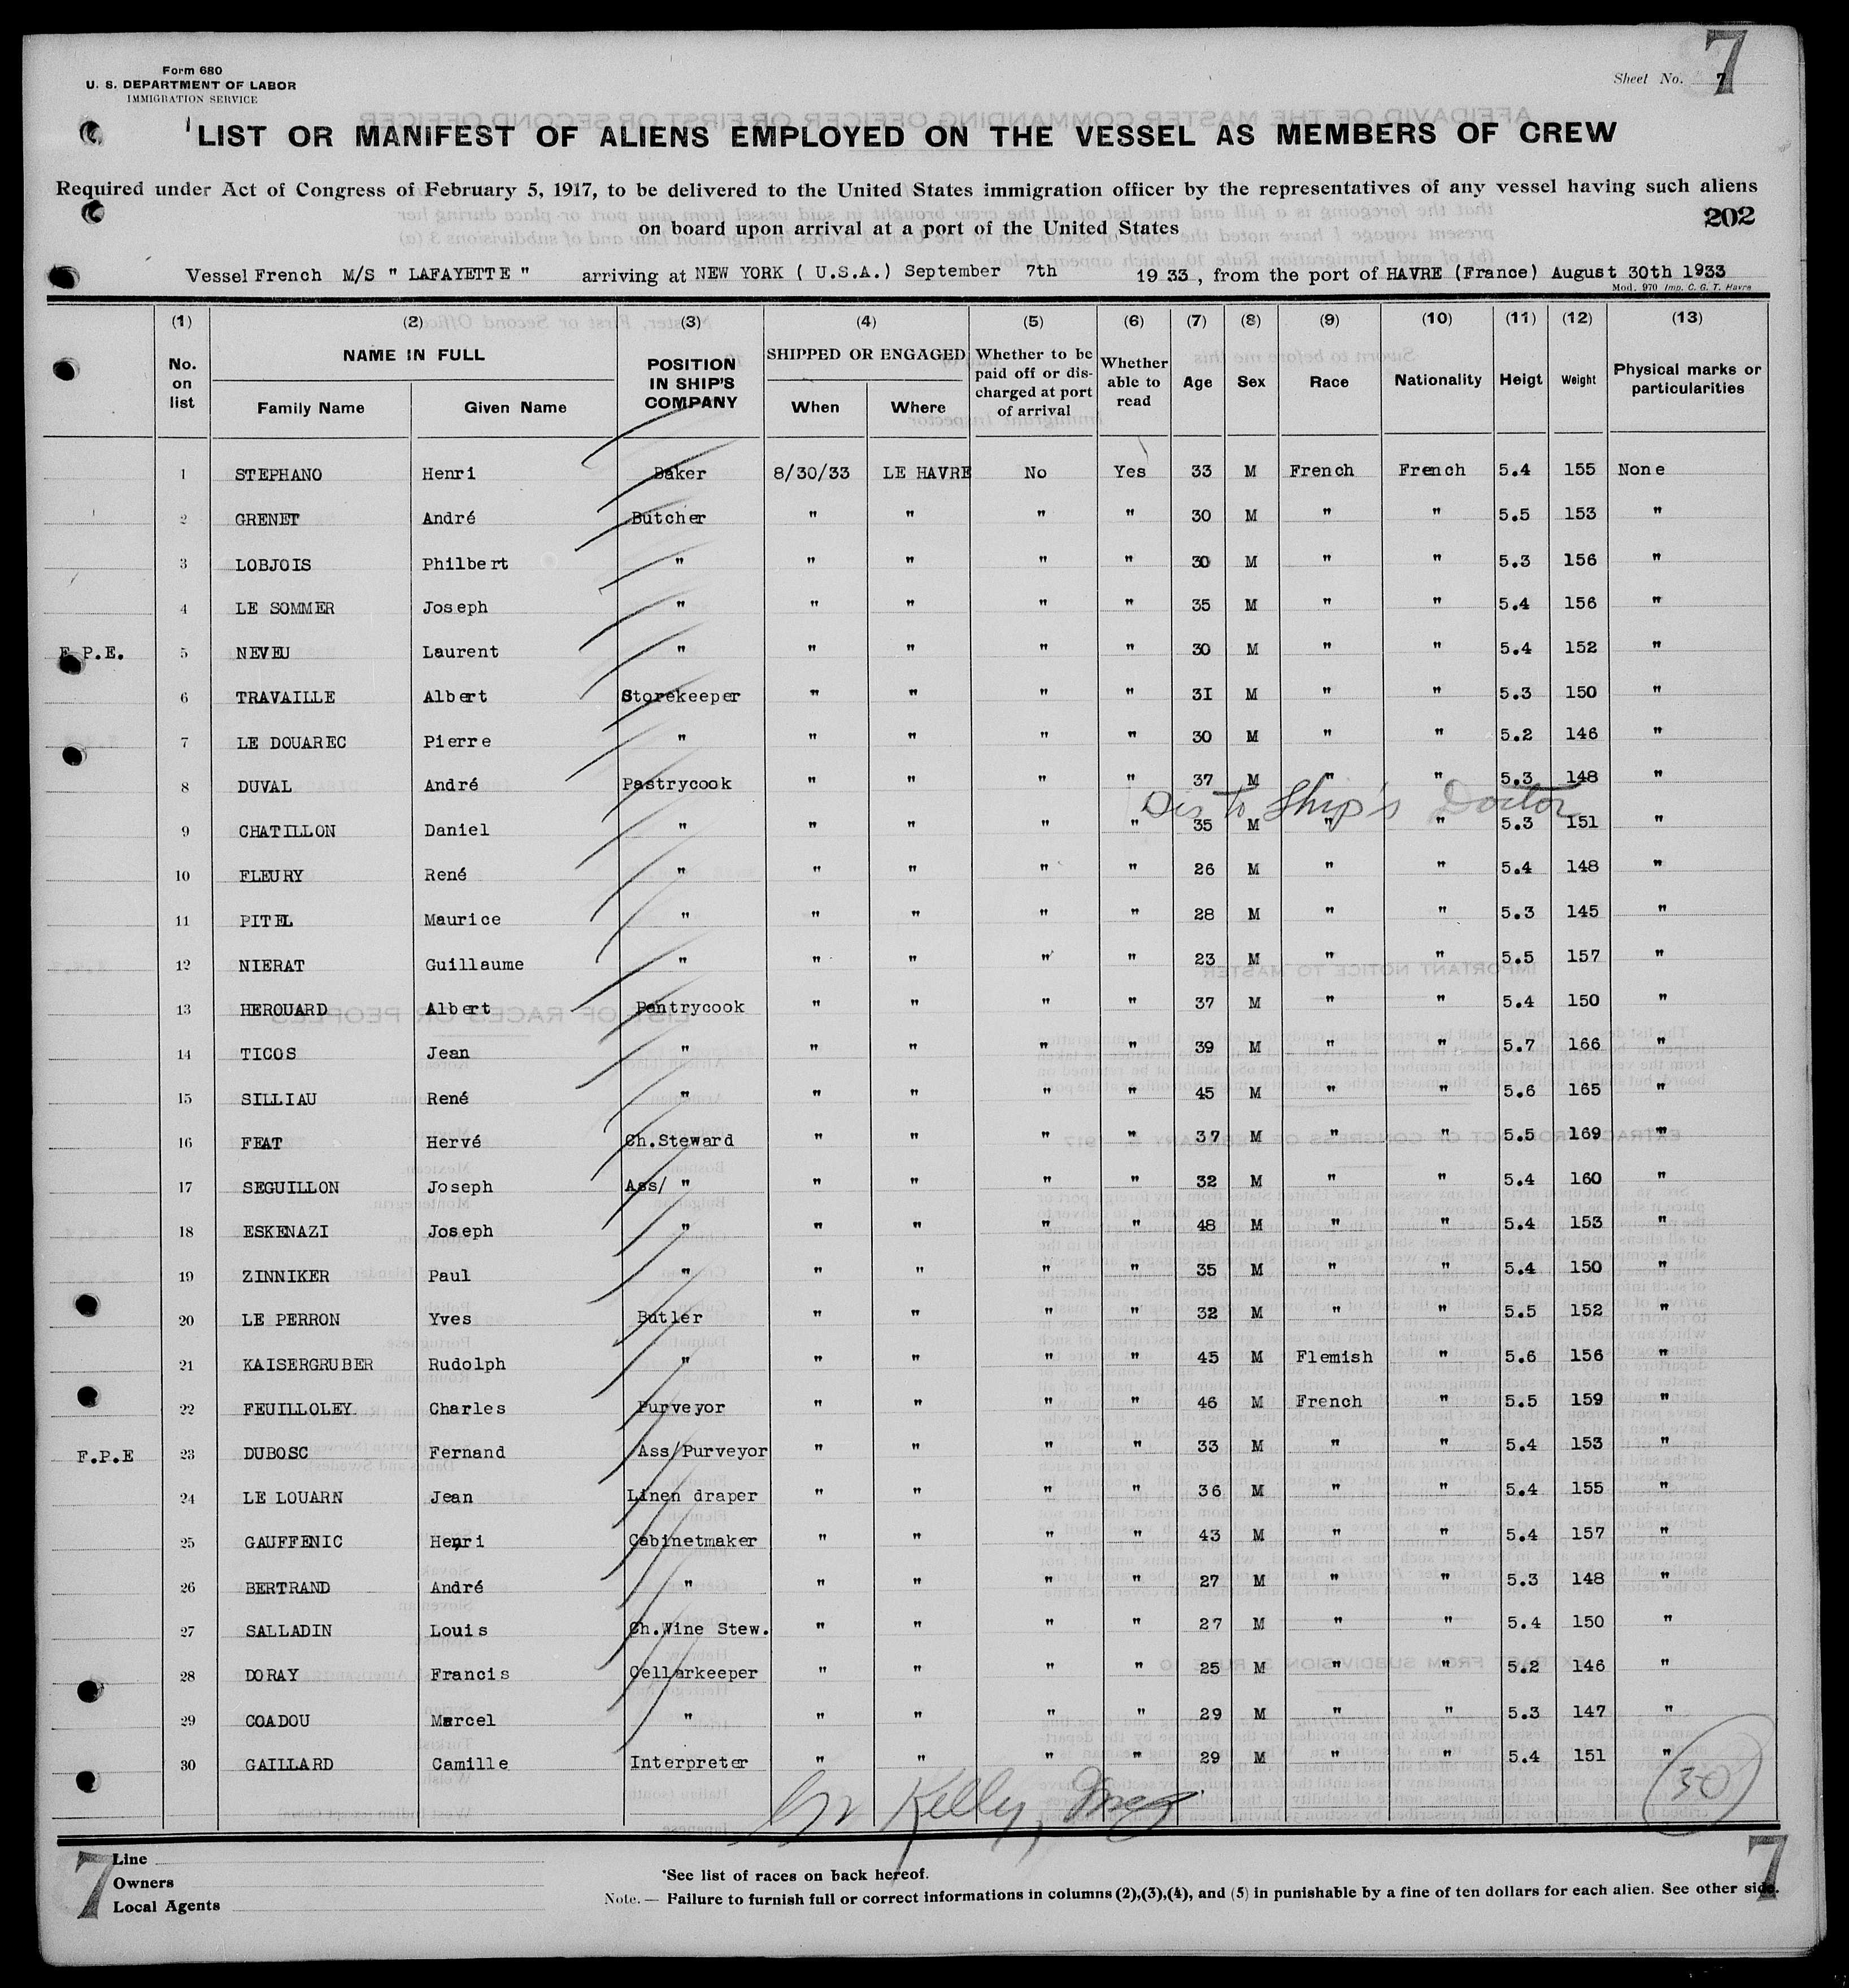 Form 680
U. S. DEPARTMENT OF LABOR
IMMIGRATION SERVICE
Sheet No. 7
7
LIST OR MANIFEST OF ALIENS EMPLOYED ON THE VESSEL AS MEMBERS OF CREW
Required under Act of Congress of February 5, 1917, to be delivered to the United States immigration officer by the representatives of any vessel having such aliens
on board upon arrival at a port of the United States
202
Vessel French M/S " LAFAYETTE " arriving at NEW YORK ( U.S.A.) September 7th 19 33 , from the port of HAVRE (France) August 30th 1933
Mod. 970 Imp. C. G. T. Havre
(1) (2) (3) (4) (5) (6) (7) (8) (9) (10) (11) (12) (13)
No. on list NAME IN FULL Family Name Given Name POSITION IN SHIP'S COMPANY SHIPPED OR ENGAGED When Where Whether to be paid off or discharged at port of arrival Whether able to read Age Sex Race Nationality Heigt Weight Physical marks or particularities
1 STEPHANO Henri Baker 8/30/33 LE HAVRE No Yes 33 M French French 5.4 155 None
2 GRENET André Butcher " " " " 30 M " " 5.5 153 "
3 LOBJOIS Philbert " " " " " 30 M " " 5.3 156 "
4 LE SOMMER Joseph " " " " " 35 M " " 5.4 156 "
F.P.E. 5 NEVEU Laurent " " " " " 30 M " " 5.4 152 "
6 TRAVAILLE Albert Storekeeper " " " " 3I M " " 5.3 150 "
7 LE DOUAREC Pierre " " " " " 30 M " " 5.2 146 "
8 DUVAL André Pastrycook " " " " 37 M " " 5.3 148 "
Dis to Ship's Doctor
9 CHATILLON Daniel " " " " " 35 M " " 5.3 151 "
10 FLEURY René " " " " " 26 M " " 5.4 148 "
11 PITEL Maurice " " " " " 28 M " " 5.3 145 "
12 NIERAT Guillaume " " " " " 23 M " " 5.5 157 "
13 HEROUARD Albert Pantrycook " " " " 37 M " " 5.4 150 "
14 TICOS Jean " " " " " 39 M " " 5.7 166 "
15 SILLIAU René " " " " " 45 M " " 5.6 165 "
16 FEAT Hervé Ch.Steward " " " " 37 M " " 5.5 169 "
17 SEGUILLON Joseph Ass/ " " " " " 32 M " " 5.4 160 "
18 ESKENAZI Joseph " " " " " 48 M " " 5.4 153 "
19 ZINNIKER Paul " " " " " 35 M " " 5.4 150 "
20 LE PERRON Yves Butler " " " " 32 M " " 5.5 152 "
21 KAISERGRUBER Rudolph " " " " " 45 M Flemish " 5.6 156 "
22 FEUILLOLEY Charles Purveyor " " " " 46 M French " 5.5 159 "
F.P.E 23 DUBOSC Fernand Ass/Purveyor " " " " 33 M " " 5.4 153 "
24 LE LOUARN Jean Linen draper " " " " 36 M " " 5.4 155 "
25 GAUFFENIC Henri Cabinetmaker " " " " 43 M " " 5.4 157 "
26 BERTRAND André " " " " " 27 M " " 5.3 148 "
27 SALLADIN Louis Ch.Wine Stew. " " " " 27 M " " 5.4 150 "
28 DORAY Francis Cellarkeeper " " " " 25 M " " 5.2 146 "
29 COADOU Marcel " " " " " 29 M " " 5.3 147 "
30 GAILLARD Camille Interpreter " " " " 29 M " " 5.4 151 "
Kelly,
30
7
7
Line
Owners
Local Agents
*See list of races on back hereof.
Note. — Failure to furnish full or correct informations in columns (2),(3),(4), and (5) in punishable by a fine of ten dollars for each alien. See other side.